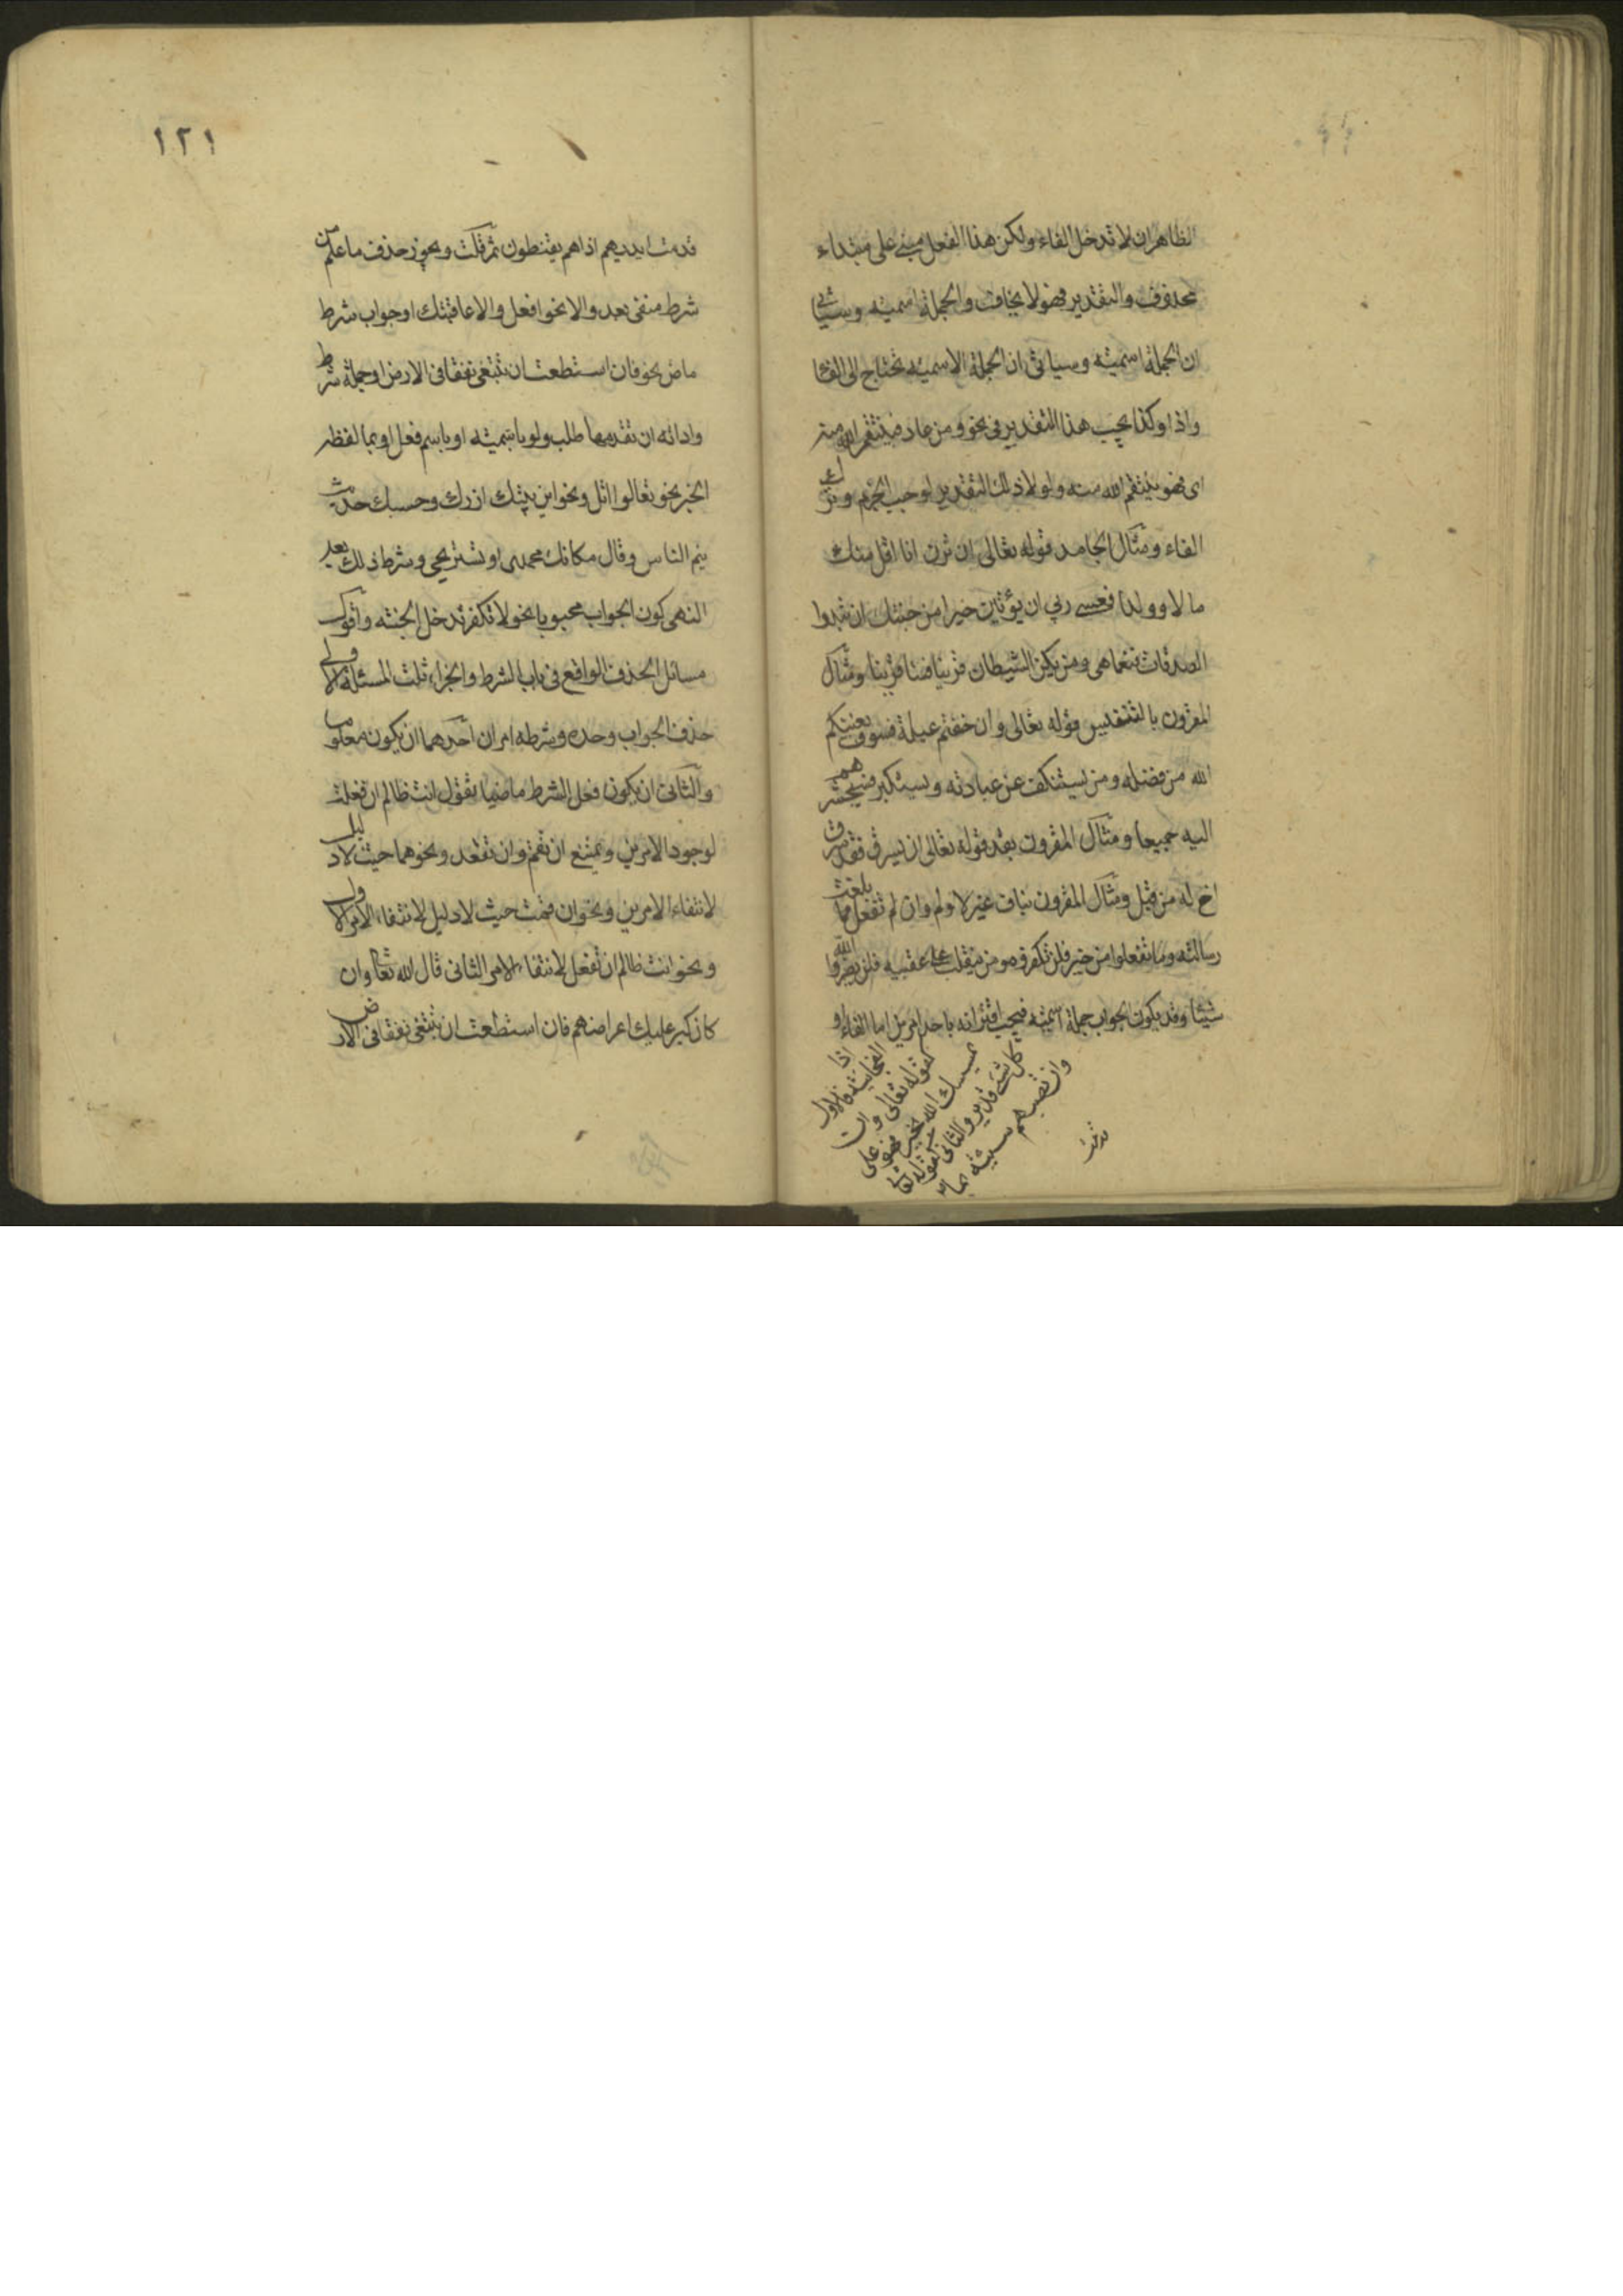 الظاهر ان لا تدخل الفاء ولكن هذا الفعل مبني على مبتداء
محذوف والتقدير فهو لا يخاف والجملة اسمية وسيأتي
ان الجملة اسمية وسياتي ان الجملة الاسمية تحتاج الى الفا
واذا وكذا يجب هذا التقدير في نحو ومن عاد فينتقم الله منه
اى فهو ينتقم الله منه ولولا ذلك التقدير لوجب الجزم وترك
الفاء ومثال الجامد قوله تعالى ان ترن انا اقل منك
مالا وولدا فعسى ربي ان يؤتين خيرا من جنتك ان تبدوا
الصدقات فنعما هى ومن يكن الشيطان له قرينا فساء قرينا ومثال
المقرون بالتنفيس قوله تعالى وان خفتم عيلة فسوف يغنيكم
الله من فضله ومن يستنكف عن عبادته ويستكبر فسيحشرهم
اليه جميعا ومثال المقرون بقد قوله تعالى ان يسرق فقد سرق
اخ له من قبل ومثال المقرون بناف غير لا ولم وان لم تفعل فما بلغت
رسالته وما تفعلوا من خير فلن تكفروه ومن ينقلب على عقبيه فلن يضر الله
شيئا وقد يكون الجواب جملة اسمية فيجب اقترانه باحد امرين اما الفاء او
اذا
الفجائية فالاول
كقوله تعالى وان
يمسسك الله بخير فهو على
كل شئ قدير والثانى كقوله تعالى
وان تصبهم سيئة بما
قدمت
١٢١
قدمت ايديهم اذا هم يقنطون ثم قلت ويجوز حذف ما علم من
شرط منفى بعد والا نحو افعل والا عاقبتك او جواب شرط
ماض نحو فان استطعت ان تبتغى نفقا فى الارض او جملة شرط
واداته ان تقدمها طلب ولو باسمية او باسم فعل او بما لفظه
الخبر نحو تعالوا اتل ونحو اين بيتك ازرك وحسبك حديث
ينم الناس وقال مكانك تحمدى او تستريحى وشرط ذلك بعد
النهى كون الجواب محبوبا نحو لا تكفر تدخل الجنة واقول
مسائل الحذف الواقع فى باب الشرط والجزاء ثلث المسئلة الاولى
حذف الجواب وحده وشرطه امران احدهما ان يكون معلوما
والثانى ان يكون فعل الشرط ماضيا تقول انت ظالم ان فعلت
لوجود الامرين ويمتنع ان تقم وان تقعد ونحوهما حيث لا دليل
لانتفاء الامرين ونحو ان قمت حيث لا دليل لانتفاء الامر الاول
ونحو انت ظالم ان تفعل لانتفاء الامر الثانى قال الله تعالى وان
كان كبر عليك اعراضهم فان استطعت ان تبتغى نفقا فى الارض